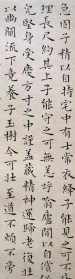 急固子精以自持宅中有士常衣絳子能見之可
理長尺約其上子能守之可無恙呼噏廬間以自
完堅身受慶方寸之中謹蓋藏精神還歸老復壯
以幽闕流下竟養子玉樹令可壯至道不煩不旁